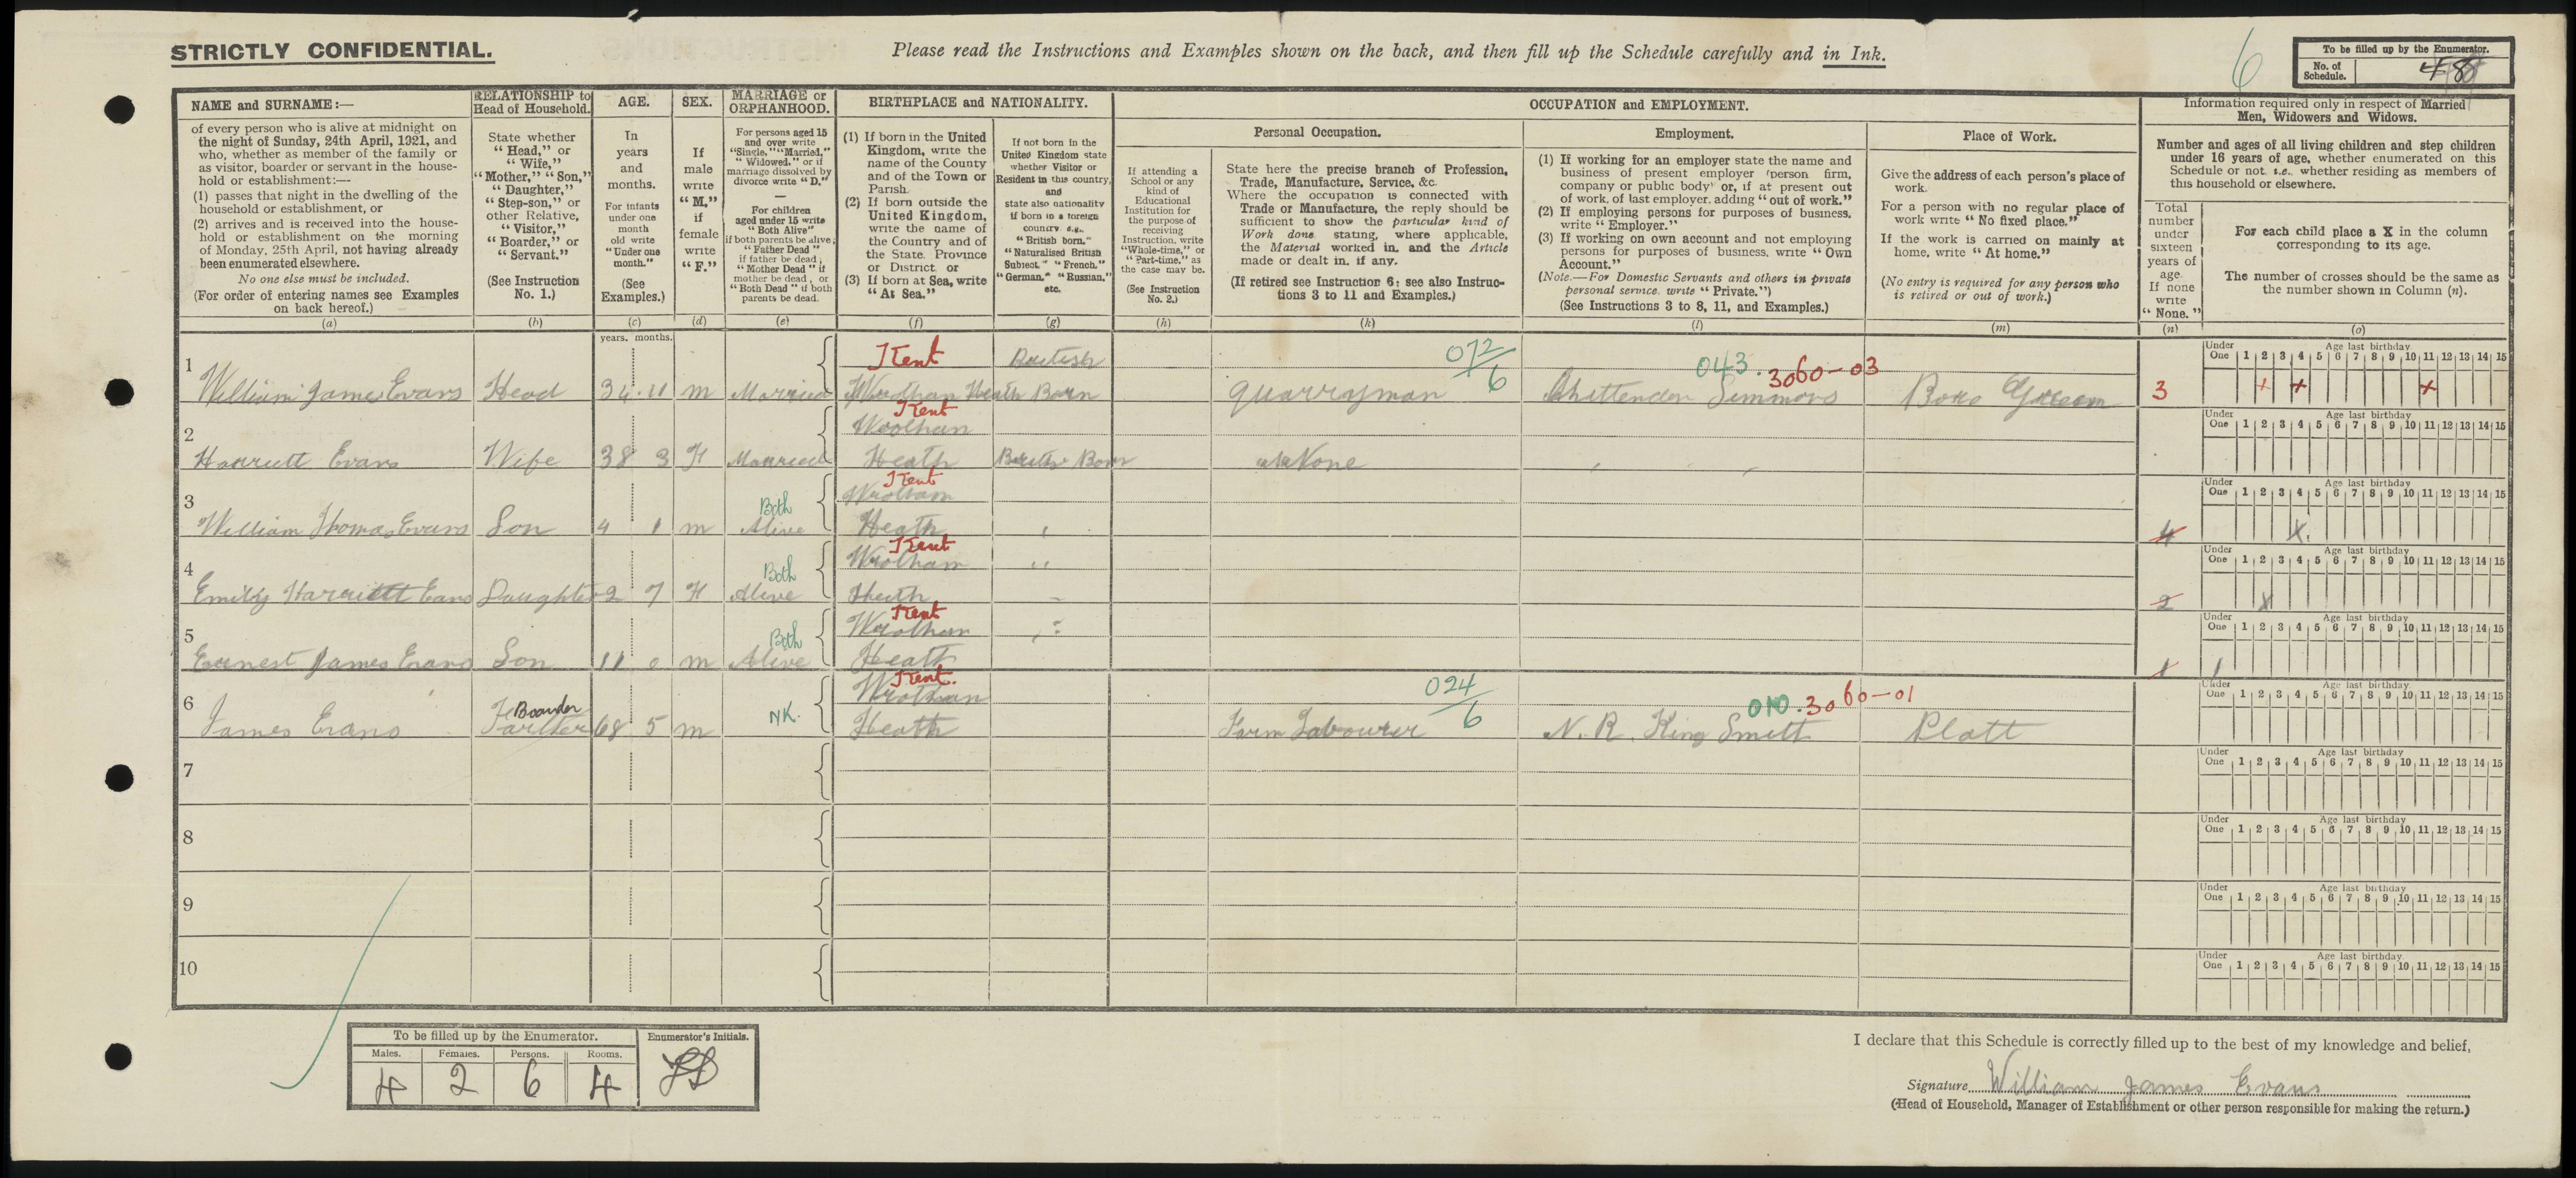 STRICTLY CONFIDENTIAL.
Please read the Instructions and Examples shown on the back, and then fill up the Schedule carefully and in Ink.
6
To be filled up by the Enumerator.
No. of Schedule.
48
NAME and SURNAME:—
of every person who is alive at midnight on
the night of Sunday, 24th April, 1921, and
who, whether as member of the family or
as visitor, boarder or servant in the house-
hold or establishment:—
(1) passes that night in the dwelling of the
household or establishment, or
(2) arrives and is received into the house-
hold or establishment on the morning
of Monday, 25th April, not having already
been enumerated elsewhere.
No one else must be included.
(For order of entering names see Examples
on back hereof.)
(a)
RELATIONSHIP to
Head of Household.
State whether
"Head," or
"Wife,"
"Mother," "Son,"
"Daughter,"
"Step-son," or
other Relative,
"Visitor,"
"Boarder," or
"Servant."
(See Instruction
No. 1.)
(b)
AGE.
In
years
and
months.
For infants
under one
month
old write
"Under one
month."
(See
Examples.)
(c)
SEX.
If
male
write
"M,"
if
female
write
"F."
(d)
MARRIAGE or
ORPHANHOOD.
For persons aged 15
and over write
"Single," "Married,"
"Widowed," or if
marriage dissolved by
divorce write "D."
—
For children
aged under 15 write
"Both Alive"
if both parents be alive;
"Father Dead"
if father be dead;
"Mother Dead" if
mother be dead, or
"Both Dead" if both
parents be dead.
(e)
BIRTHPLACE and NATIONALITY.
(1) If born in the United
Kingdom, write the
name of the County
and of the Town or
Parish.
(2) If born outside the
United Kingdom,
write the name of
the Country and of
the State, Province
or District, or
(3) If born at Sea, write
"At Sea."
(f)
If not born in the
United Kingdom state
whether Visitor or
Resident in this country,
and
state also nationality
if born in a foreign
country e.g.,
"British born,"
"Naturalised British
Subject," "French,"
"German," "Russian,"
etc.
(g)
OCCUPATION and EMPLOYMENT.
Personal Occupation.
If attending a
School or any
kind of
Educational
Institution for
the purpose of
receiving
Instruction, write
"Whole-time," or
"Part-time," as
the case may be.
(See Instruction
No. 2.)
(h)
State here the precise branch of Profession,
Trade, Manufacture, Service, &c.
Where the occupation is connected with
Trade or Manufacture, the reply should be
sufficient to show the particular kind of
Work done stating, where applicable,
the Material worked in, and the Article
made or dealt in, if any.
(If retired see Instruction 6; see also Instruc-
tions 3 to 11 and Examples.)
(k)
Employment.
(1) If working for an employer state the name and
business of present employer (person firm,
company or public body) or, if at present out
of work, of last employer, adding "out of work."
(2) If employing persons for purposes of business,
write "Employer."
(3) If working on own account and not employing
persons for purposes of business, write "Own
Account."
(Note.—For Domestic Servants and others in private
personal service, write "Private.")
(See Instructions 3 to 8, 11, and Examples.)
(l)
Place of Work.
Give the address of each person's place of
work.
For a person with no regular place of
work write "No fixed place."
If the work is carried on mainly at
home, write "At home."
(No entry is required for any person who
is retired or out of work.)
(m)
Information required only in respect of Married
Men, Widowers and Widows.
Number and ages of all living children and step children
under 16 years of age, whether enumerated on this
Schedule or not, i.e. whether residing as members of
this household or elsewhere.
Total
number
under
sixteen
years of
age.
If none
write
"None."
(n)
For each child place a X in the column
corresponding to its age.
The number of crosses should be the same as
the number shown in Column (n).
(o)
years. months.
Under One 1 2 3 4 5 6 7 8 9 10 11 12 13 14 15
Age last birthday
1 William James Evans Head 34 11 m Married Kent Wrotham Heath British Born Quarryman 072/6 Chittenden Simmons 043. 3060-03 Boro Green 3 + + +
Under One 1 2 3 4 5 6 7 8 9 10 11 12 13 14 15
Age last birthday
2 Harriett Evans Wife 38 3 F Married Kent Wrotham Heath British Born None
Under One 1 2 3 4 5 6 7 8 9 10 11 12 13 14 15
Age last birthday
3 William Thomas Evans Son 4 1 m Both Alive Kent Wrotham Heath 4 X
Under One 1 2 3 4 5 6 7 8 9 10 11 12 13 14 15
Age last birthday
4 Emily Harriett Evans Daughter 2 7 F Both Alive Kent Wrotham Heath 2 X
Under One 1 2 3 4 5 6 7 8 9 10 11 12 13 14 15
Age last birthday
5 Earnest James Evans Son 11 0 m Both Alive Kent Wrotham Heath 1 1
Under One 1 2 3 4 5 6 7 8 9 10 11 12 13 14 15
Age last birthday
6 James Evans Farther Boarder 68 5 m NK. Kent. Wrotham Heath Farm Labourer 024/6 N. R. King Smith 010. 3060-01 Platt
Under One 1 2 3 4 5 6 7 8 9 10 11 12 13 14 15
Age last birthday
7
Under One 1 2 3 4 5 6 7 8 9 10 11 12 13 14 15
Age last birthday
8
Under One 1 2 3 4 5 6 7 8 9 10 11 12 13 14 15
Age last birthday
9
Under One 1 2 3 4 5 6 7 8 9 10 11 12 13 14 15
Age last birthday
10
Under One 1 2 3 4 5 6 7 8 9 10 11 12 13 14 15
Age last birthday
To be filled up by the Enumerator.
Males. Females. Persons. Rooms.
4 2 6 4
Enumerator's Initials.
I declare that this Schedule is correctly filled up to the best of my knowledge and belief,
Signature William James Evans
(Head of Household, Manager of Establishment or other person responsible for making the return.)